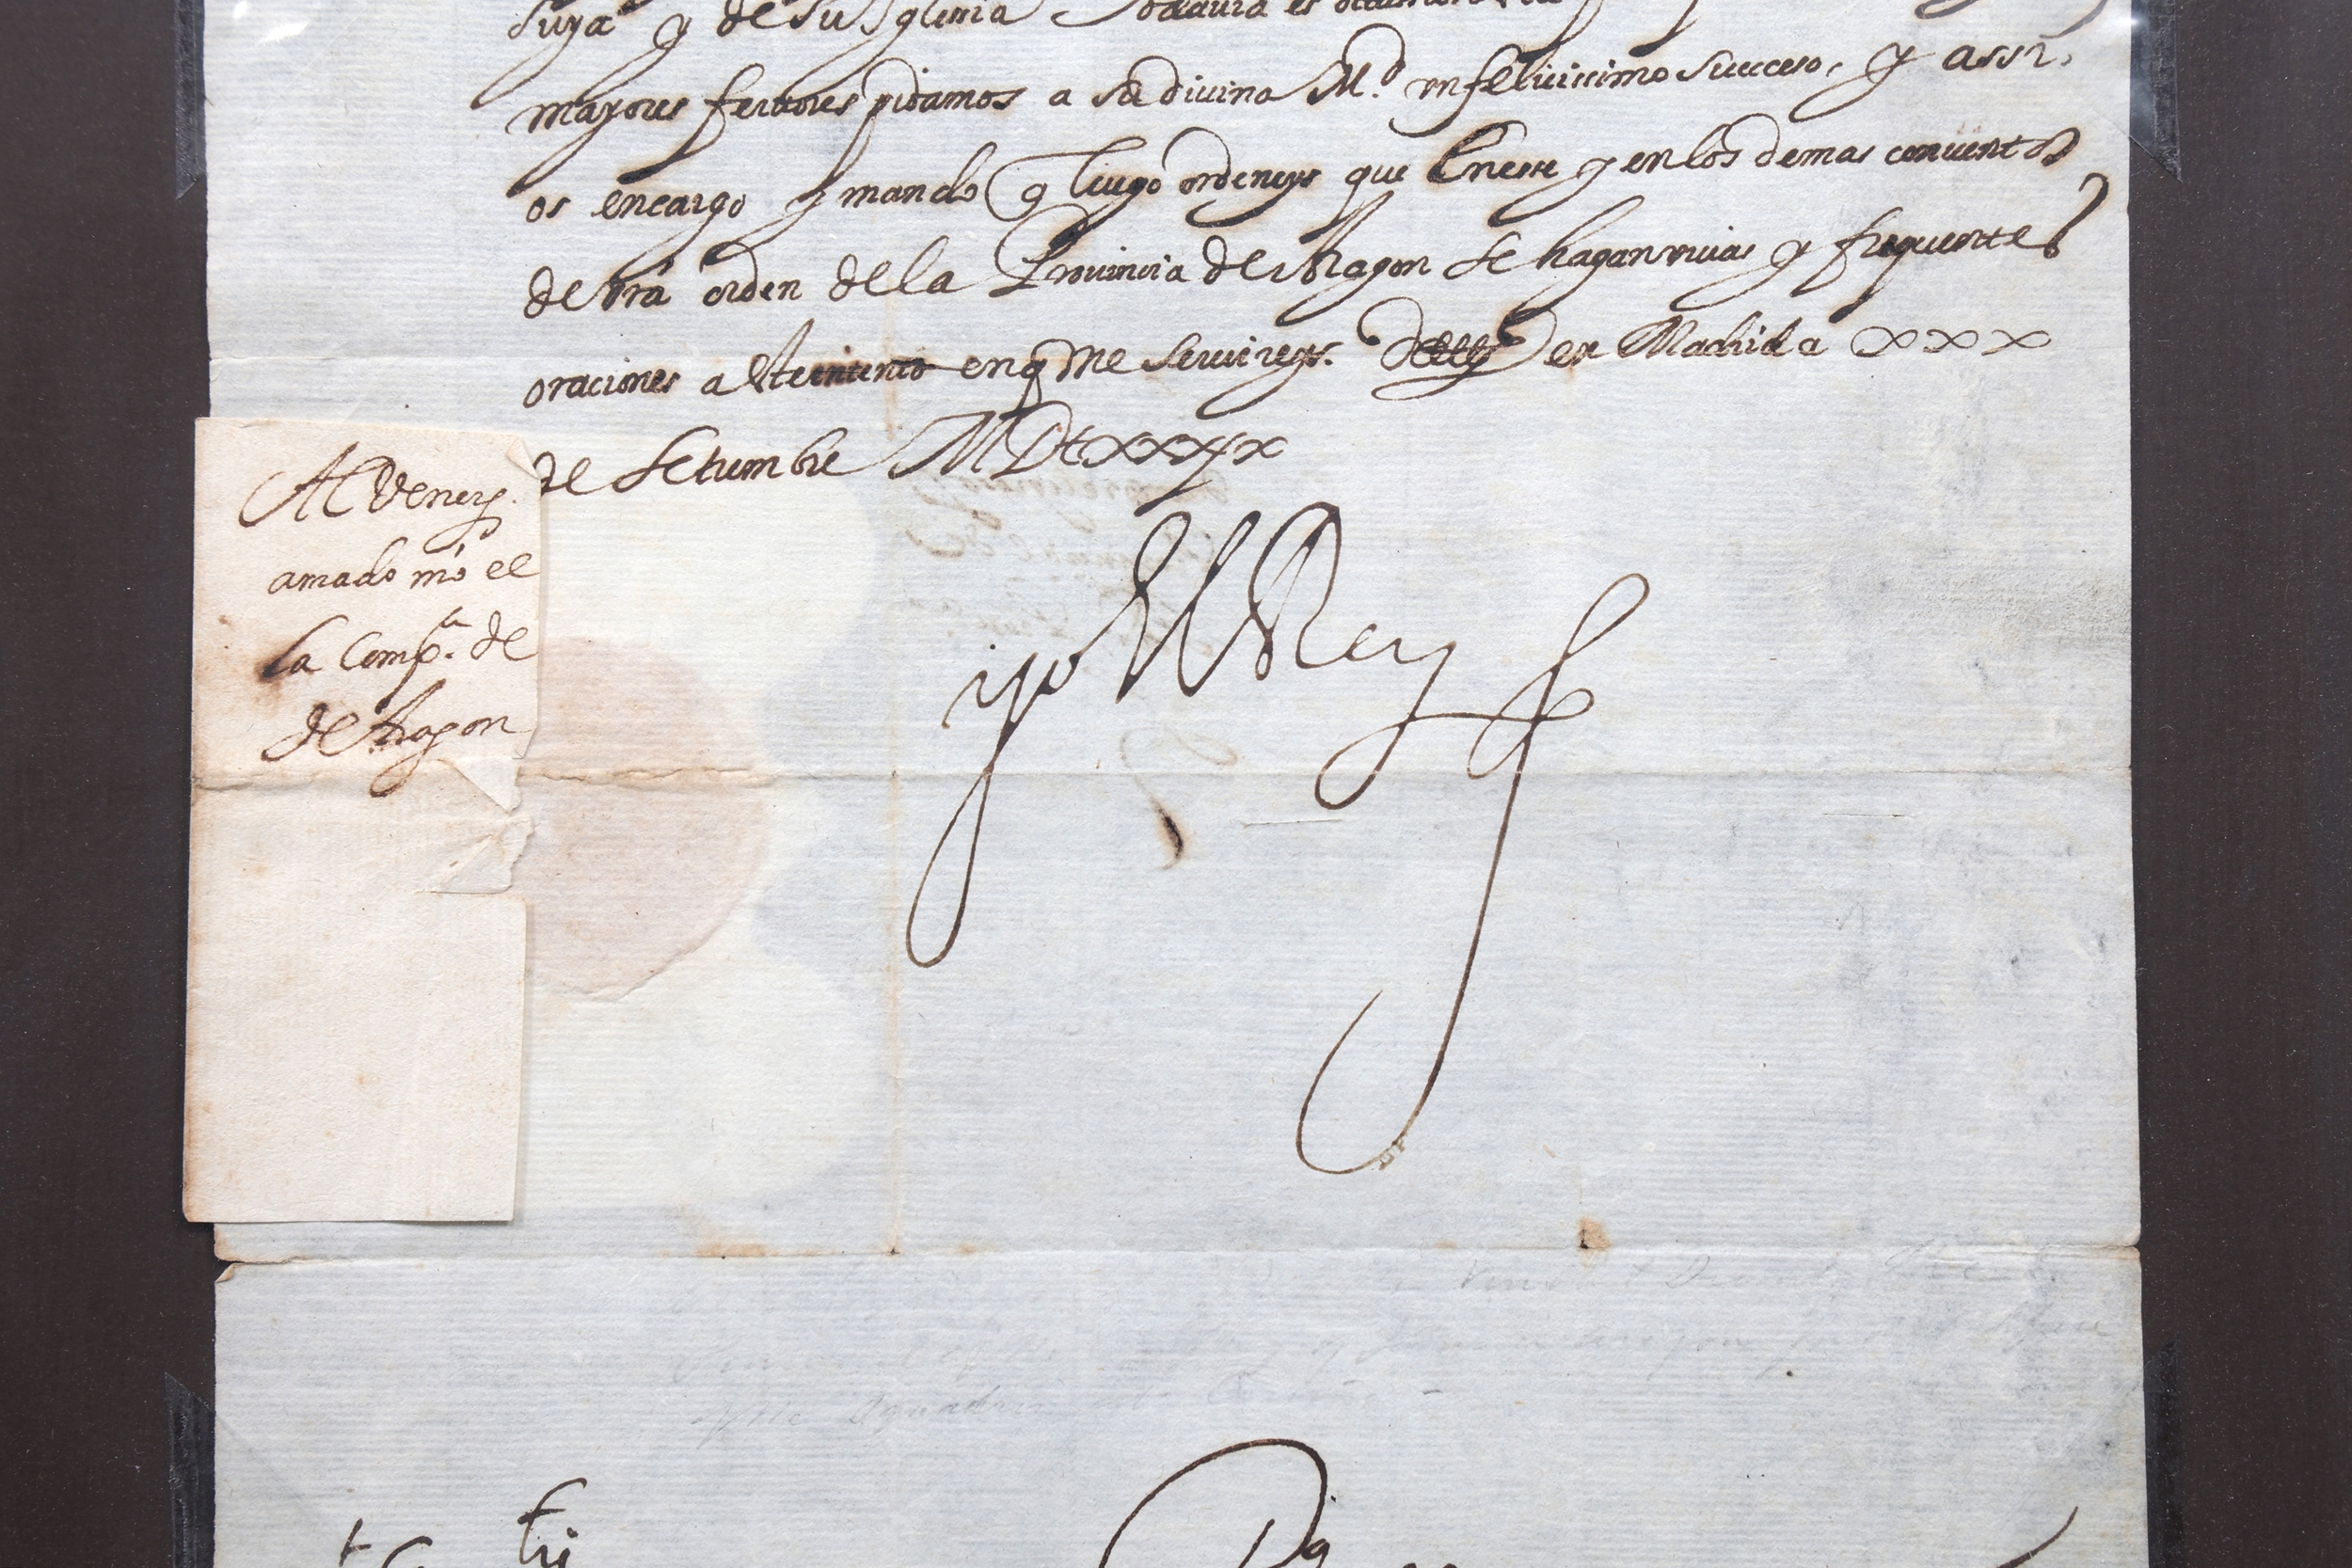 suya y de su Iglesia Todauia es
mayores feruores pidamos a su diuina M.d vn felicissimo succeso, y assi,
os encargo y mando q luego ordeneys que en esse y en los demas conuentos
de vra orden de la Prouincia de Aragon se hagan viuas y frequentes
oraciones a este intento en q me seruireys. Dat. en Madrid a xxx
de Setiembre MDCxxxx
yo el Rey
Al Vener.
amado nro el
la Comp.a de
de Aragon